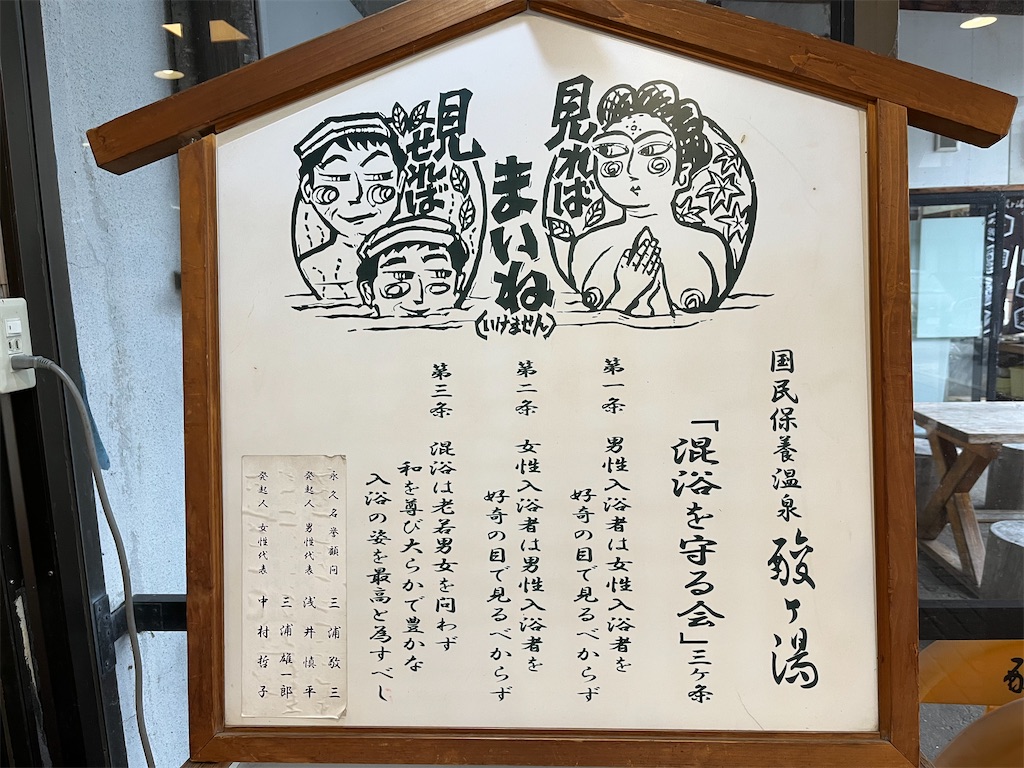 見れば
見せれば
まいね
(いけません)
国民保養温泉 酸ヶ湯
「混浴を守る会」三ケ条
第一条 男性入浴者は女性入浴者を
好奇の目で見るべからず
第二条 女性入浴者は男性入浴者を
好奇の目で見るべからず
第三条 混浴は老若男女を問わず
和を尊び大らかで豊かな
入浴の姿を最高と為すべし
永久名誉顧問 三浦敬三
三浦雄一郎
発起人 男性代表 浅井慎平
発起人 女性代表 中村哲子